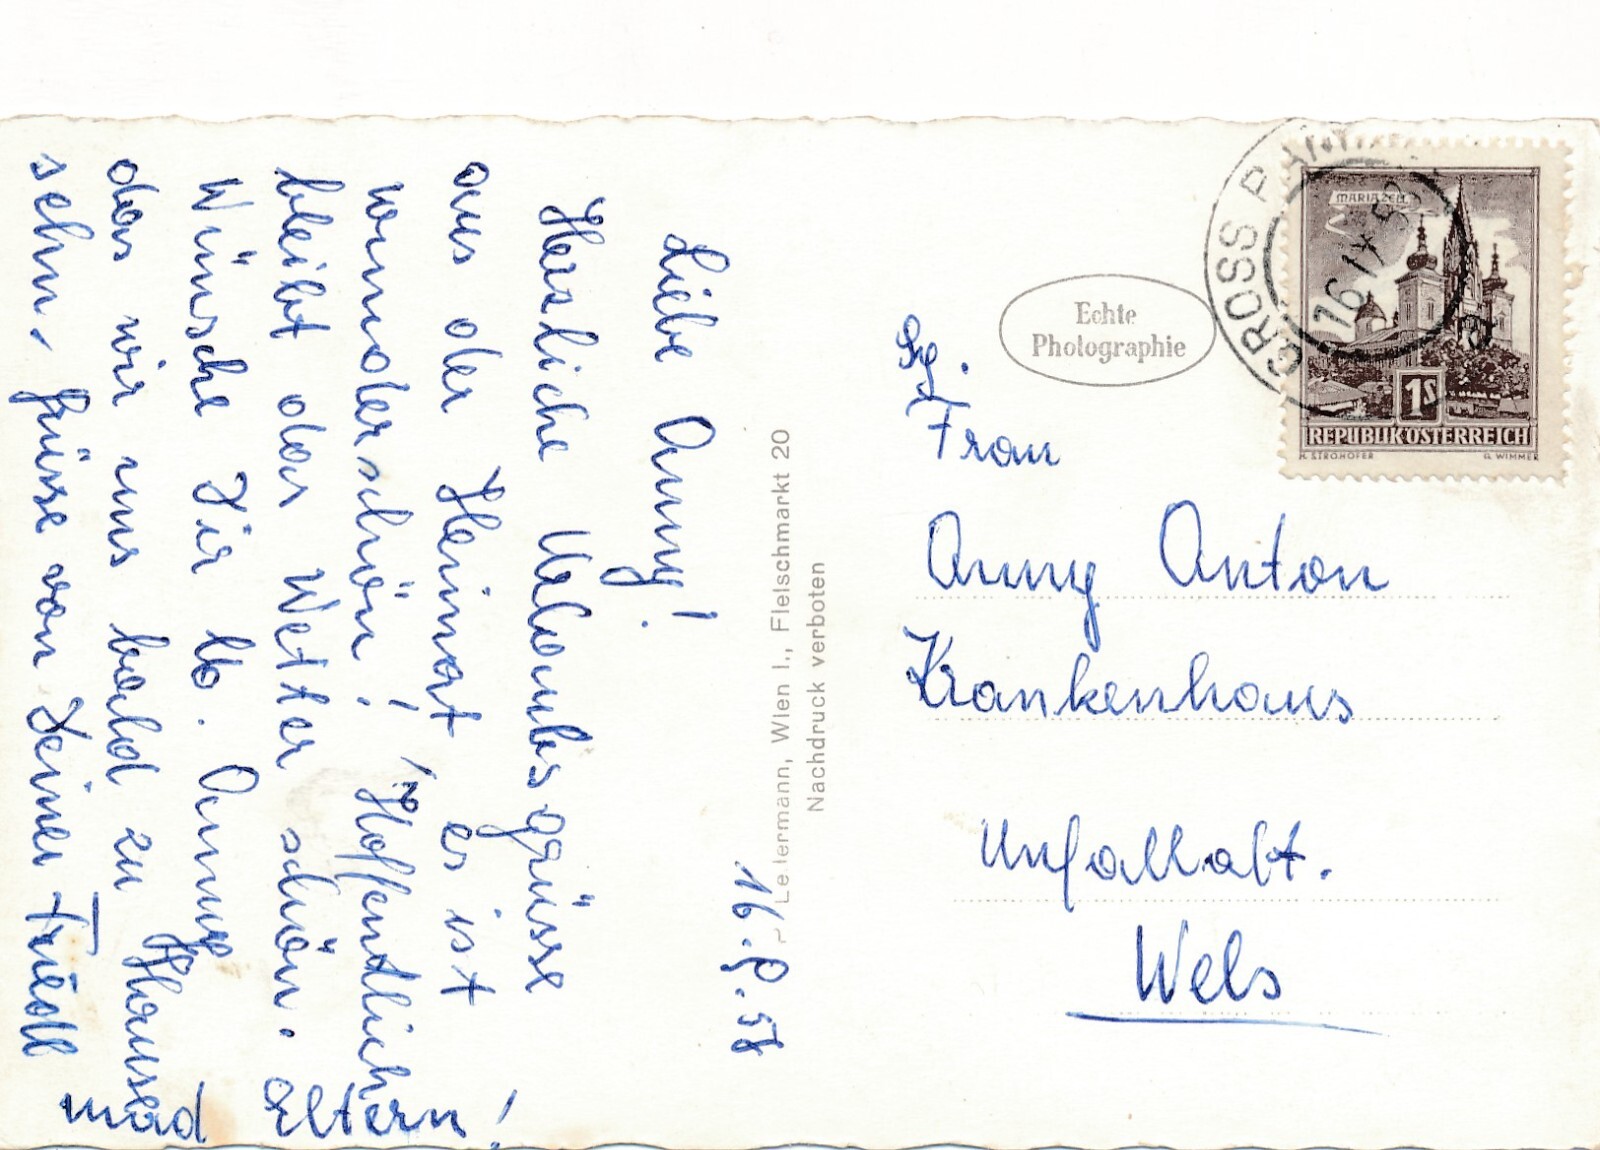 16.9.58
Liebe Anny!
Herzliche Urlaubsgrüsse
aus der Heimat es ist
wunderschön! Hoffentlich
bleibt das Wetter schön.
Wünsche Dir lb. Anny
das wir uns bald zu Hause
sehn. Grüsse von Deiner Friedl
und Eltern!
P. Ledermann, Wien I., Fleischmarkt 20
Nachdruck verboten
Echte
Photographie
GROSS
16. IX. 58
MARIAZELL
1S
REPUBLIK ÖSTERREICH
H. STROHOFER G. WIMMER
Frau
Anny Anton
Krankenhaus
Unfallabt.
Wels